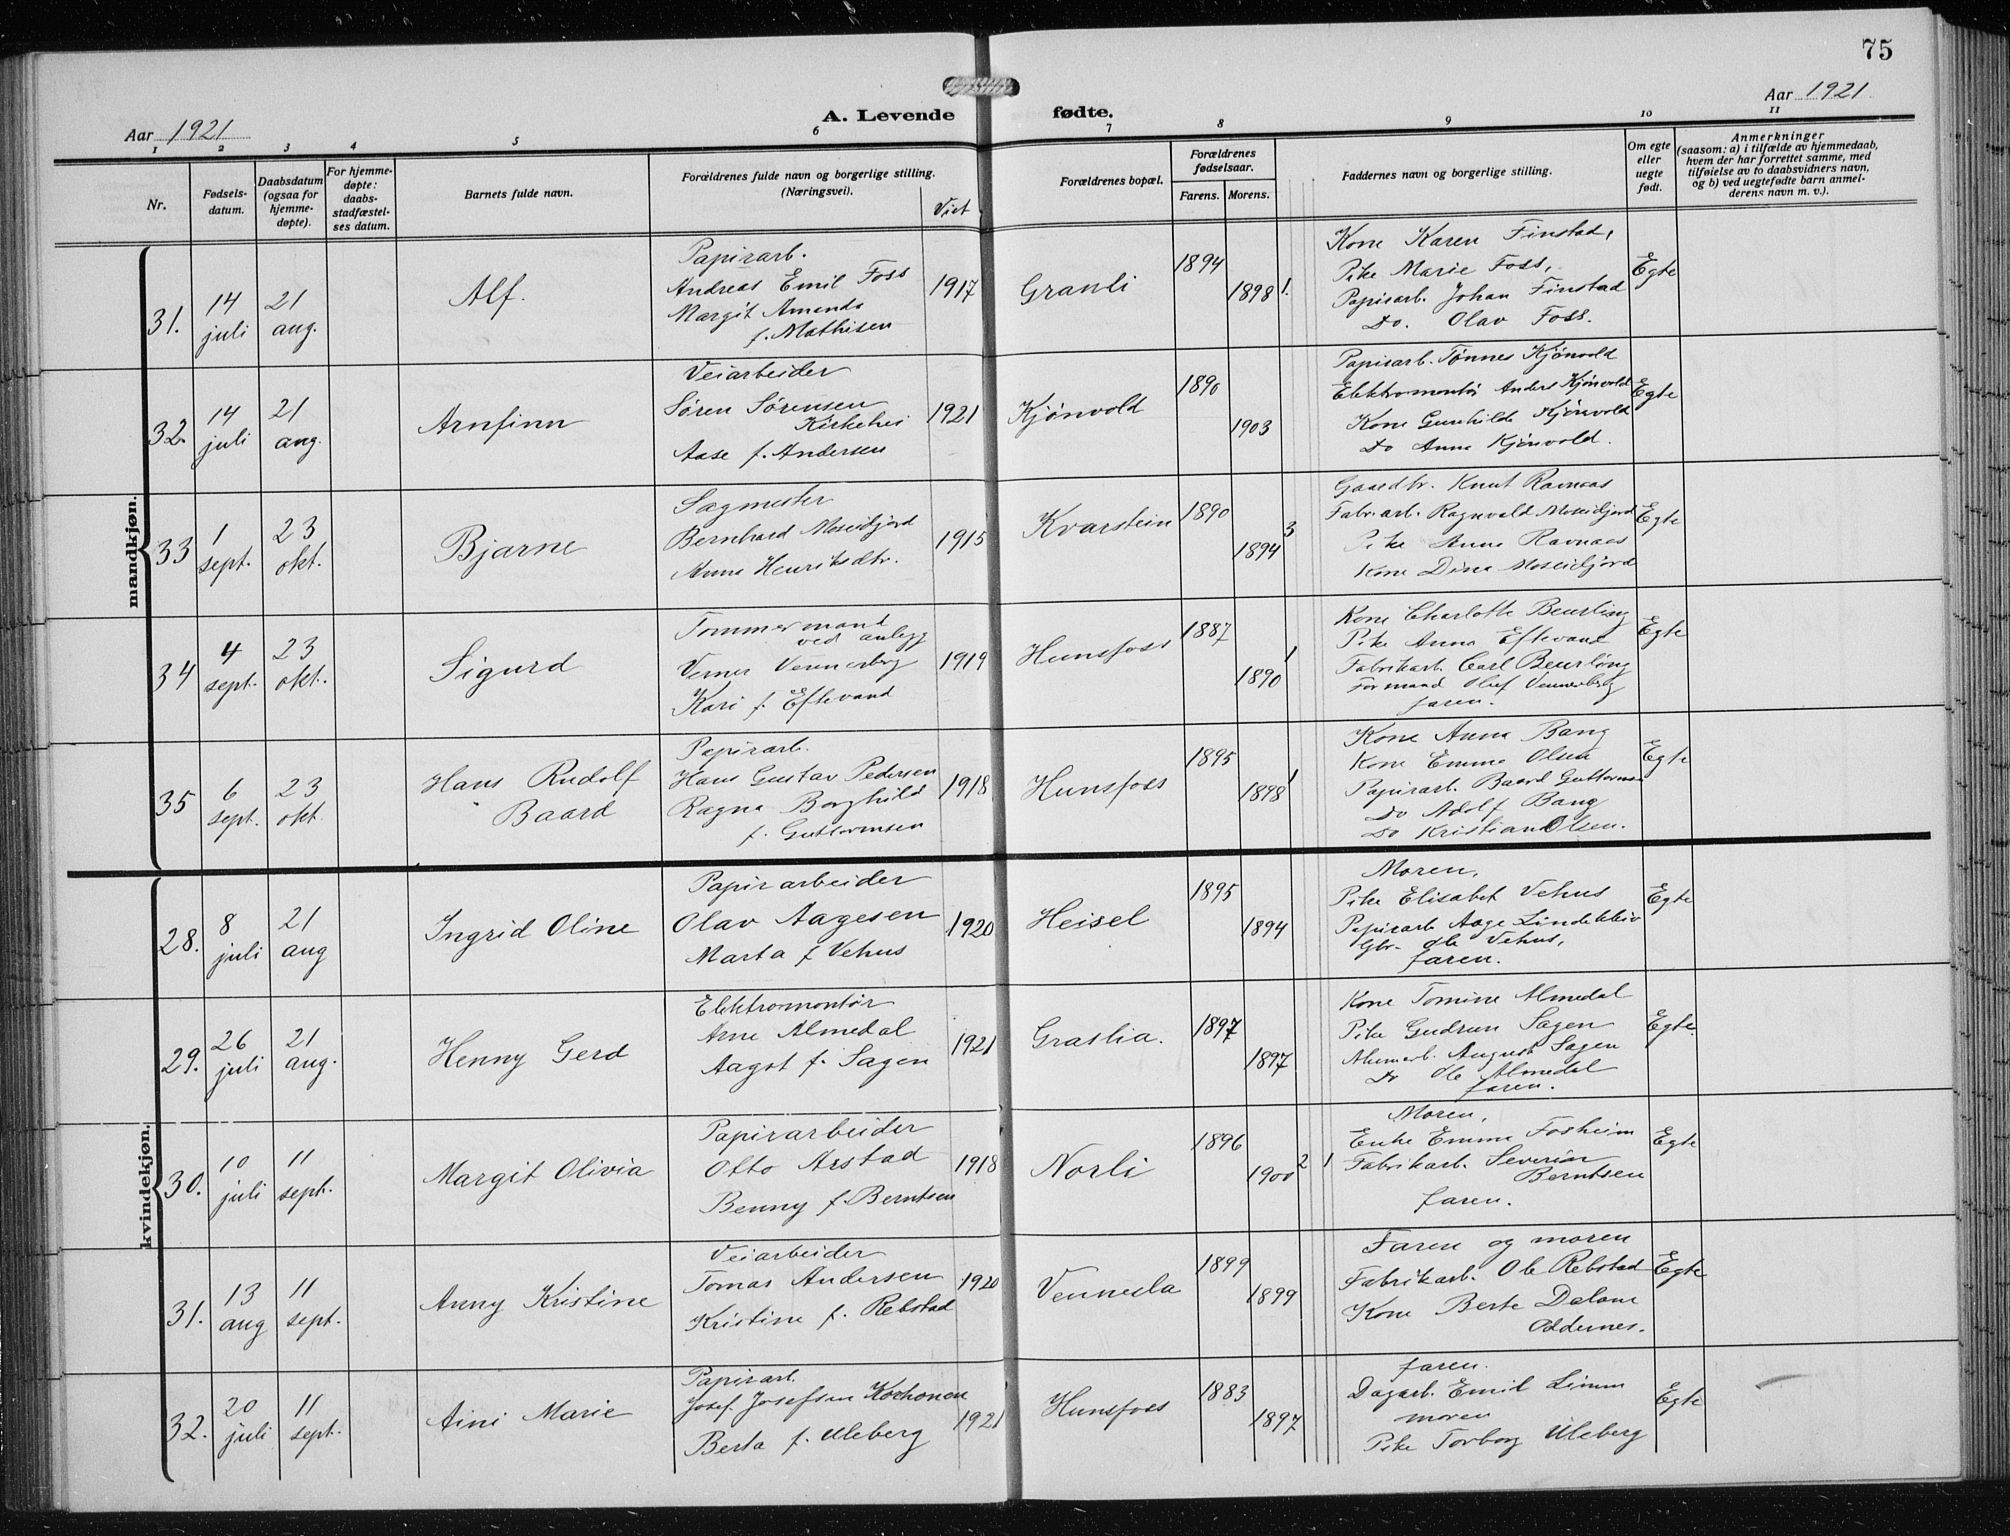 75
Aar 1921
A. Levende fødte.
Aar 1921
1 2 3 4 5 6 7 8 9 10 11
Nr.
Fødsels-
datum.
Daabsdatum
(ogsaa for
hjemme-
døpte).
For hjemme-
døpte:
daabs-
stadfæstel-
ses datum.
Barnets fulde navn.
Forældrenes fulde navn og borgerlige stilling.
(Næringsvei).
Viet
Forældrenes bopæl.
Forældrenes
fødselsaar.
Farens. Morens.
Faddernes navn og borgerlige stilling.
Om egte
eller
uegte
født.
Anmerkninger
(saasom: a) i tilfælde av hjemmedaab,
hvem der har forrettet samme, med
tilføielse av to daabsvidners navn,
og b) ved uegtefødte barn anmel-
derens navn m. v.).
mandkjøn.
31.
14
juli
21
aug.
Alf.
Papirarb.
Andreas Emil Foss
Margit Amanda
f. Mathisen
1917
Granli
1894
1898
1.
Kone Karen Finstad,
Pike Marie Foss,
Papirarb. Johan Finstad
Do. Olav Foss.
Egte
32.
14
juli
21
aug.
Arnfinn
Veiarbeider
Søren Sørensen
Kirkehei
Aase f. Andersen
1921
Kjønvold
1890
1903
Papirarb. Tønnes Kjønvold
Elektromontør Anders Kjønvold
Kone Gunhilde Kjønvold
Do Anna Kjønvold.
Egte
33
1
sept.
23
okt.
Bjarne
Sagmester
Bernhard Moseidjord
Anna Henriksdtr.
1915
Kvarstein
1890
1894
3
Gaardbr. Knut Ravnaas
Fabr.arb. Ragnvald Moseidjord
Pike Anna Ravnaas
Kone Dina Moseidjord
Egte
34
4
sept.
23
okt.
Sigurd
Tømmermand
ved anlegg
Verner Vennerberg
Kari f. Eftevand
1919
Hunsfoss
1887
1890
1
Kone Charlotte Beurling
Pike Anna Eftevand
Fabrikarb. Carl Beurling
Formand Oluf Vennerberg
faren.
Egte
35
6
sept.
23
okt.
Hans Rudolf
Baard
Papirarb.
Hans Gustav Pedersen
Ragna Borghild
f. Guttormsen
1918
Hunsfoss
1895
1898
1
Kone Anna Bang
Kone Emma Olsen
Papirarb. Baard Guttormsen
Do Adolf Bang
Do Kristian Olsen.
Egte
kvindekjøn.
28.
8
juli
21
aug
Ingrid Oline
Papirarbeider
Olav Aagesen
Marta f Vehus
1920
Heisel
1895
1894
Moren,
Pike Elisabet Vehus
Papirarb Aage Lindekleiv
Gbr. Ole Vehus,
faren.
Egte
29.
26
juli
21
aug.
Henny Gerd
Elektromontør
Arne Almedal
Aagot f. Sagen
1921
Graslia.
1897
1897
Kone Tomine Almedal
Pike Gudrun Sagen
August Sagen
Do Ole Almedal
faren.
Egte
30.
10
juli
11
sept.
Margit Olivia
Papirarbeider
Otto Arstad
Benny f. Berntsen
1918
Norli
1896
1900
2 1
Moren,
Enke Emma Fosheim
Fabrikarb. Severin
Berntsen
faren.
Egte
31.
13
aug
11
sept.
Anny Kristine
Veiarbeider
Tomas Andersen
Kristine f. Rebstad
1920
Vennesla
1899
1899
Faren og moren
Fabrikarb. Ole Rebstad
Kone Berte Dalane
Oddernes.
Egte
32.
20
juli
11
sept.
Aini Marie
Papirarb.
Josef Josefsen Korhonen
Berta f. Uleberg
1921
Hunsfoss
1883
1897
faren.
Dagarb. Emil Limm
moren
Pike Torborg Uleberg
Egte